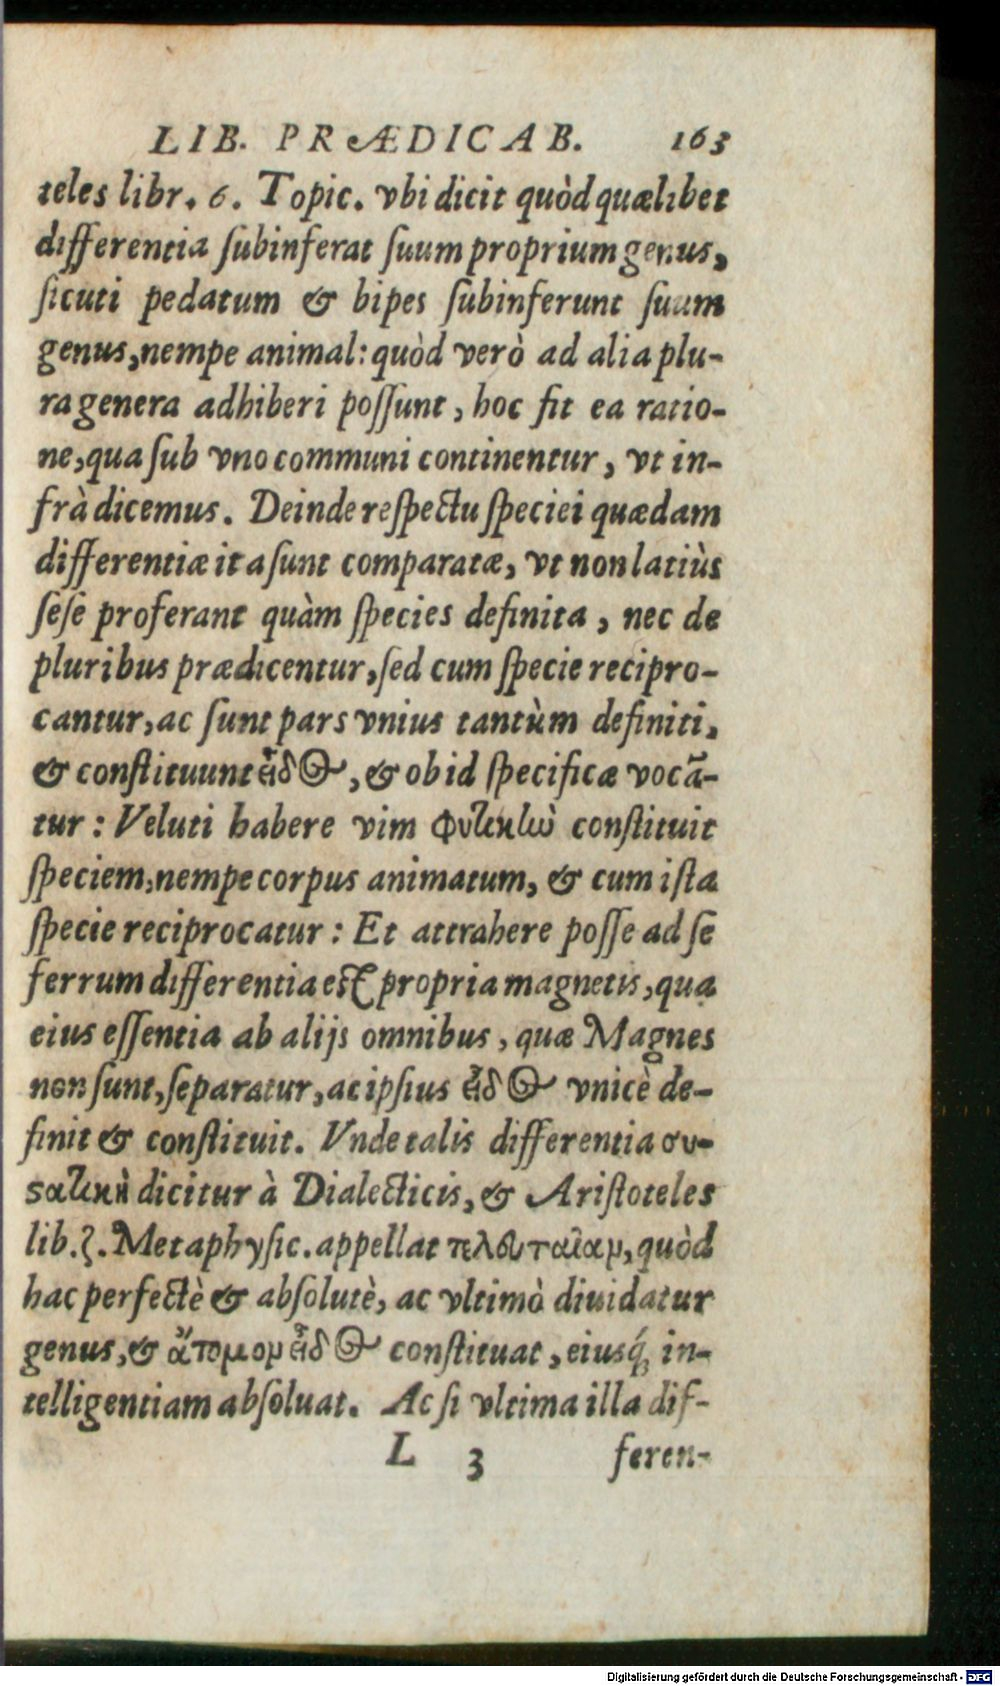 LIB. PRÆDICAB. 163
teles libr. 6. Topic. vbi dicit quòd quælibet
differentia ſubinferat ſuum proprium genus,
ſicuti pedatum & bipes ſubinferunt ſuum
genus, nempe animal: quòd verò ad alia plu-
ra genera adhiberi poſſunt, hoc fit ea ratio-
ne, qua ſub vno communi continentur, vt in-
frà dicemus. Deinde reſpectu ſpeciei quædam
differentiæ ita ſunt comparatæ, vt non latiùs
ſeſe proferant quàm ſpecies definita, nec de
pluribus prædicentur, ſed cum ſpecie recipro-
cantur, ac ſunt pars vnius tantùm definiti,
& conſtituunt εἶδος, & ob id ſpecificæ vocā-
tur: Veluti habere vim φυτικὴν conſtituit
ſpeciem, nempe corpus animatum, & cum iſta
ſpecie reciprocatur: Et attrahere poſſe ad ſe
ferrum differentia eſt propria magnetis, qua
eius eſſentia ab alijs omnibus, quæ Magnes
non ſunt, ſeparatur, ac ipſius εἶδος vnicè de-
finit & conſtituit. Vnde talis differentia συ-
ϛατικὴ dicitur à Dialecticis, & Ariſtoteles
lib. ζ. Metaphyſic. appellat τελευταίαν, quòd
hac perfectè & abſolutè, ac vltimò diuidatur
genus, & ἄτομον εἶδος conſtituat, eiusq́; in-
telligentiam abſoluat. Ac ſi vltima illa dif-
L 3 feren-
Digitalisierung gefördert durch die Deutsche Forschungsgemeinschaft - DFG